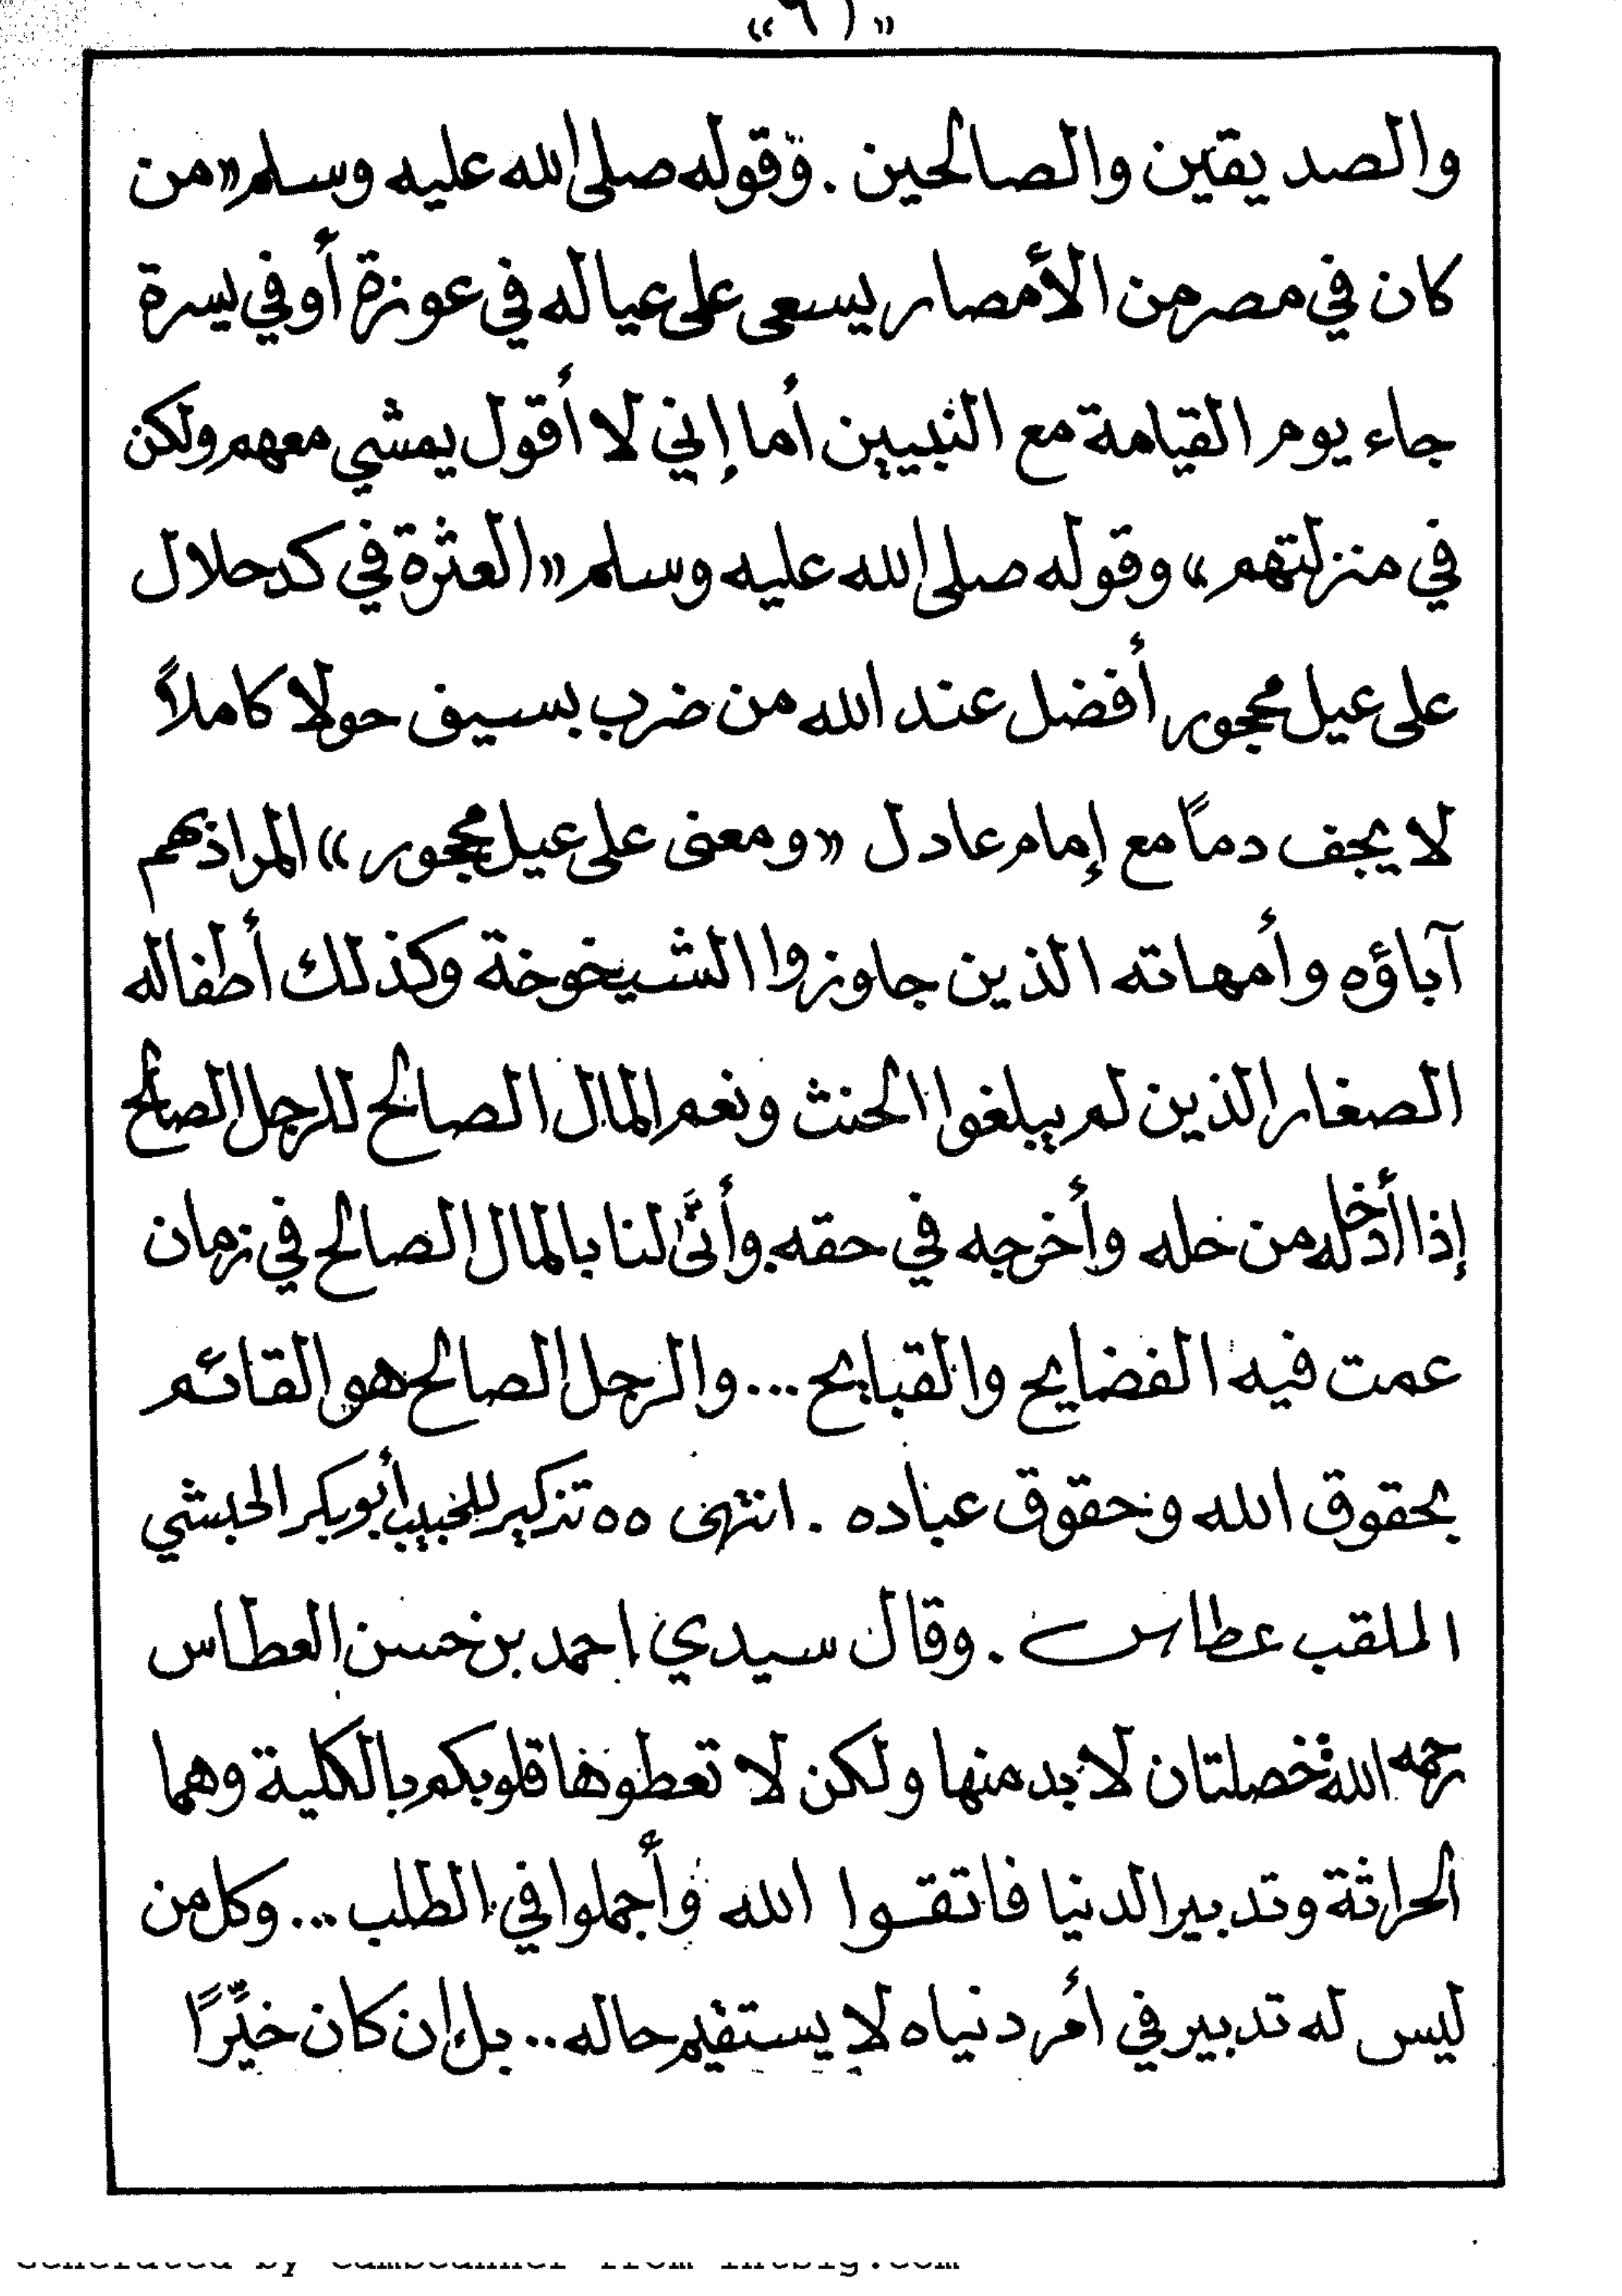 «٦١»
والصديقين والصالحين . وقوله صلى الله عليه وسلم «من
كان في مصر من الأمصار يسعى على عياله في عوزة أو في يسرة
جاء يوم القيامة مع النبيين أما إني لا أقول يمشي معهم ولكن
في منزلتهم» وقوله صلى الله عليه وسلم «العثرة في كد حلال
على عيل محجور أفضل عند الله من ضرب بسيف حولا كاملاً
لا يجف دماً مع إمام عادل «ومعنى على عيل محجور» المراد بهم
آباؤه وأمهاته الذين جاوزوا الشيخوخة وكذلك أطفاله
الصغار الذين لم يبلغوا الحنث ونعم المال الصالح للرجل الصالح
إذا أدخله من حله وأخرجه في حقه وأنَّى لنا بالمال الصالح في زمان
عمت فيه الفضايح والقبايح ... والرجل الصالح هو القائم
بحقوق الله وحقوق عباده . انتهى ه‍ ه‍ تذكير للحبيب أبوبكر الحبشي
الملقب عطاس . وقال سيدي احمد بن حسن العطاس
رحمه الله: خصلتان لا بد منها ولكن لا تعطوها قلوبكم بالكلية وهما
الحراثة وتدبير الدنيا فاتقوا الله وأجملوا في الطلب ... وكل من
ليس له تدبير في أمر دنياه لا يستقيم حاله .. بل إن كان خيِّرًا
Generated by CamScanner from intsig.com